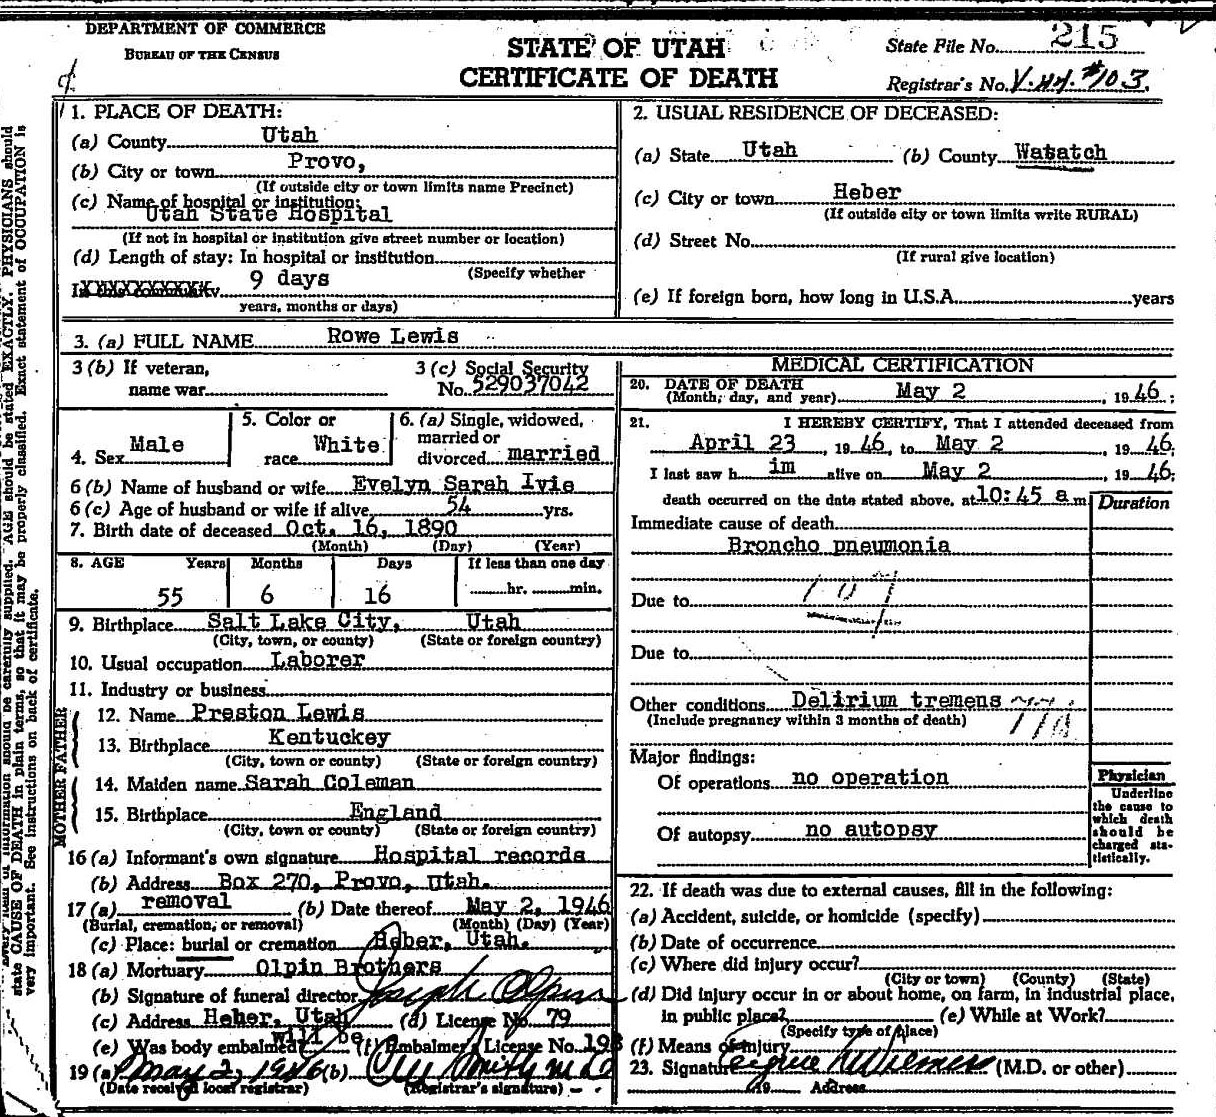 DEPARTMENT OF COMMERCE
BUREAU OF THE CENSUS
STATE OF UTAH
CERTIFICATE OF DEATH
State File No. 215
Registrar's No. V.44.#103
1. PLACE OF DEATH:
(a) County Utah
(b) City or town Provo,
(If outside city or town limits name Precinct)
(c) Name of hospital or institution:
Utah State Hospital
(If not in hospital or institution give street number or location)
(d) Length of stay: In hospital or institution
(Specify whether
9 days
years, months or days)
2. USUAL RESIDENCE OF DECEASED:
(a) State Utah (b) County Wasatch
(c) City or town Heber
(If outside city or town limits write RURAL)
(d) Street No.
(If rural give location)
(e) If foreign born, how long in U.S.A. years
3. (a) FULL NAME Rowe Lewis
3 (b) If veteran,
name war
3 (c) Social Security
No. 529037042
4. Sex Male
5. Color or
race White
6. (a) Single, widowed,
married or
divorced married
6 (b) Name of husband or wife Evelyn Sarah Ivie
6 (c) Age of husband or wife if alive 54 yrs.
7. Birth date of deceased Oct. 16, 1890
(Month) (Day) (Year)
8. AGE Years Months Days If less than one day
55 6 16 hr. min.
9. Birthplace Salt Lake City, Utah
(City, town, or county) (State or foreign country)
10. Usual occupation Laborer
11. Industry or business
FATHER
12. Name Preston Lewis
13. Birthplace Kentuckey
(City, town or county) (State or foreign country)
MOTHER
14. Maiden name Sarah Coleman
15. Birthplace England
(City, town or county) (State or foreign country)
16 (a) Informant's own signature Hospital records
(b) Address Box 270, Provo, Utah.
17 (a) removal (b) Date thereof May 2, 1946
(Burial, cremation, or removal) (Month) (Day) (Year)
(c) Place: burial or cremation Heber, Utah.
18 (a) Mortuary Olpin Brothers
(b) Signature of funeral director Joseph Olpin
(c) Address Heber, Utah (d) License No. 79
will be
(e) Was body embalmed (f) Embalmer's License No. 198
19 (a) May 2, 1946 (b)
(Date received local registrar) (Registrar's signature)
MEDICAL CERTIFICATION
20. DATE OF DEATH
(Month, day, and year) May 2, 1946;
21. I HEREBY CERTIFY, That I attended deceased from
April 23, 1946, to May 2, 1946;
I last saw h im alive on May 2, 1946;
death occurred on the date stated above, at 10:45 a m
Duration
Immediate cause of death
Broncho pneumonia
107
Due to
Due to
Other conditions Delirium tremens
(Include pregnancy within 3 months of death)
Major findings:
Of operations no operation
Of autopsy no autopsy
Physician
Underline
the cause to
which death
should be
charged sta-
tistically.
22. If death was due to external causes, fill in the following:
(a) Accident, suicide, or homicide (specify)
(b) Date of occurrence
(c) Where did injury occur?
(City or town) (County) (State)
(d) Did injury occur in or about home, on farm, in industrial place,
in public place? (e) While at Work?
(Specify type of place)
(f) Means of injury
23. Signature (M.D. or other)
19 Address
AGE should be stated EXACTLY. PHYSICIANS should
state CAUSE OF DEATH in plain terms, so that it may be properly classified. Exact statement of OCCUPATION is
very important. See instructions on back of certificate.